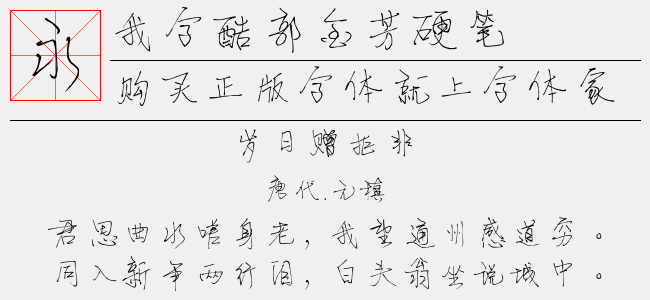 永
我字酷部金芳硬笔
购买正版字体就上字体家
岁日赠拒非
唐代.元稹
君思曲水嗟身老，我望通州感道穷。
同入新年两行泪，白头翁坐说城中。